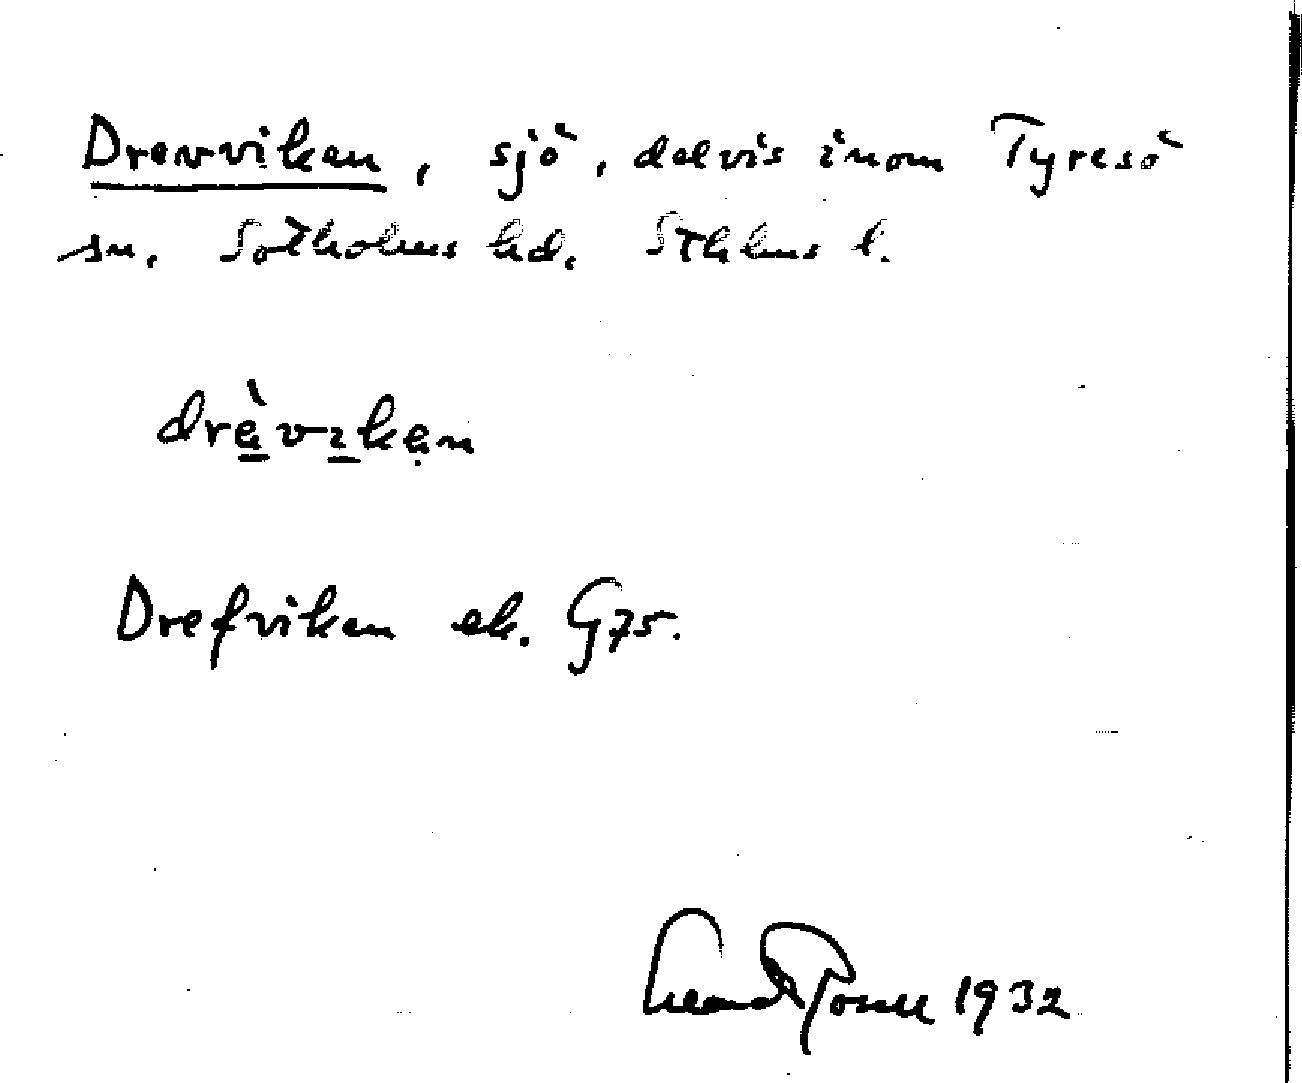 Drevviken, sjö, delvis inom Tyresö
sn, Sotholms hd. Sthlms l.
drèviken
Drefviken ek. G75.
1932